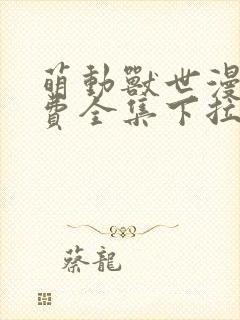 萌動獸世漫
費全集下拉
蔡龍